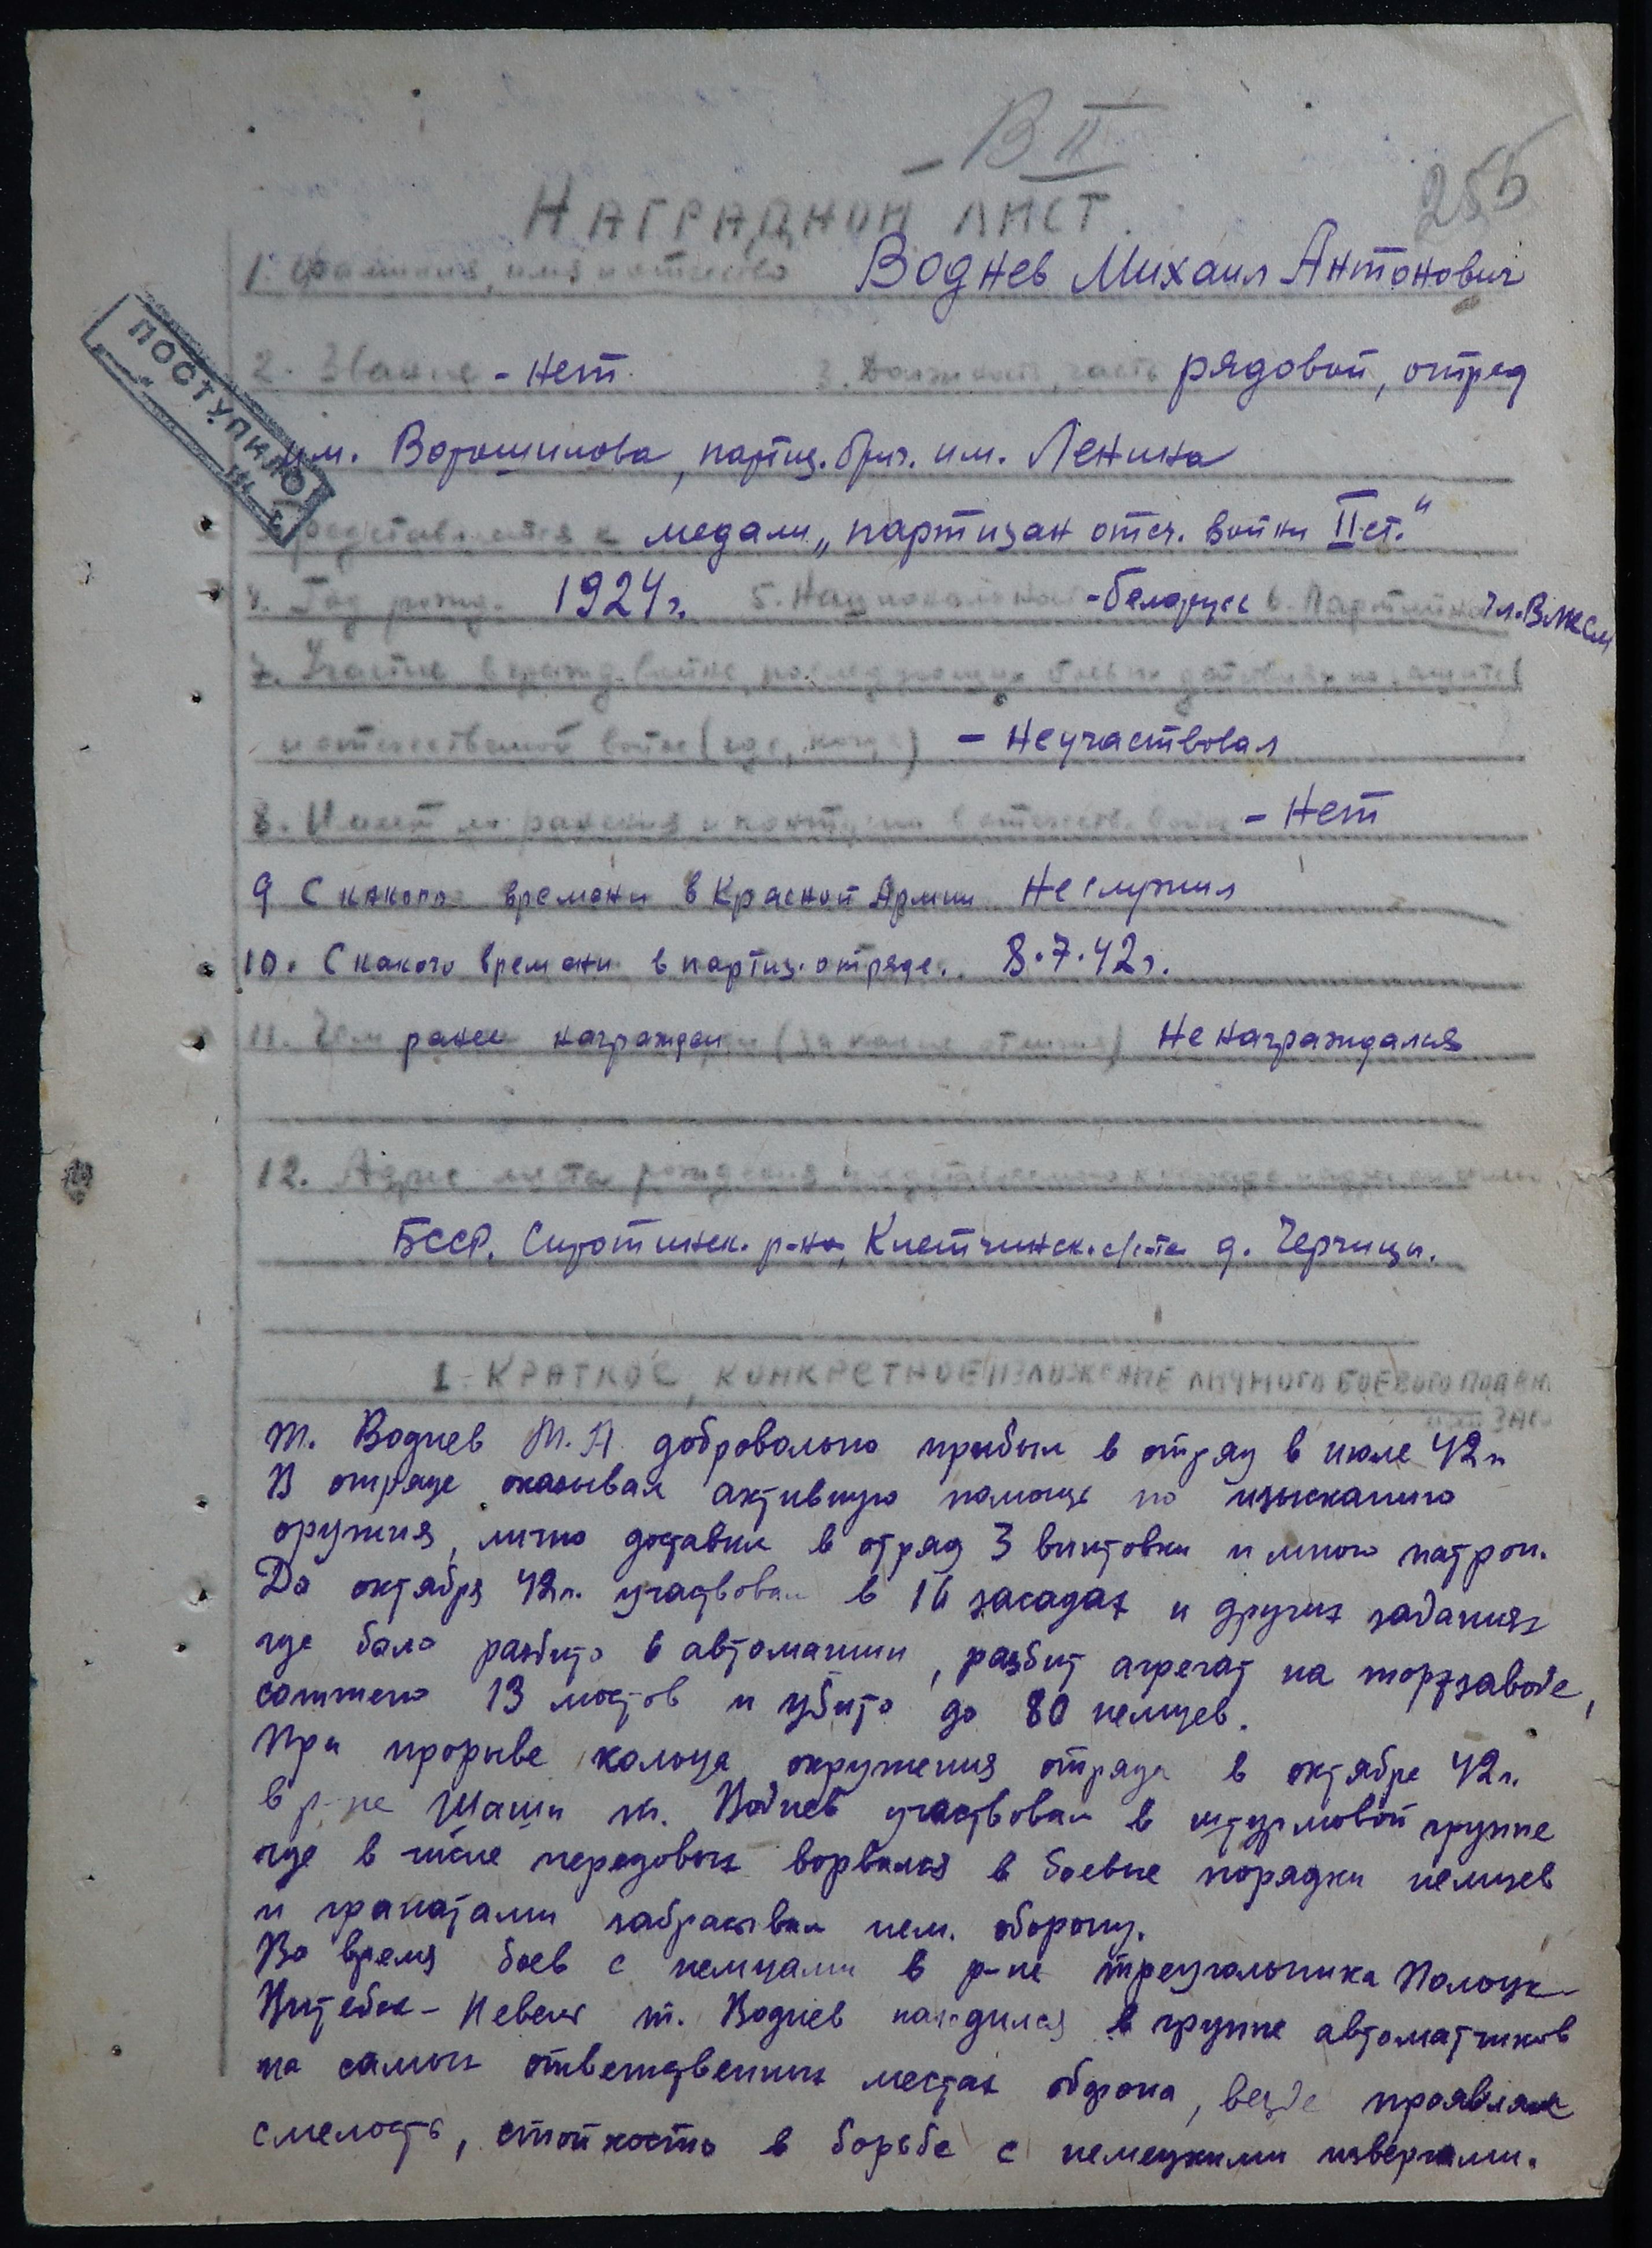 - В II
255
НАГРАДНОЙ ЛИСТ.
1. Фамилия, имя и отчество Воднев Михаил Антонович
ПОСТУПИЛО
2. Звание - нет. 3. Должность, часть рядовой, отряд
им. Ворошилова, партиз. бриг. им. Ленина
Представляется к медали „партизан отеч. войны II ст."
4. Год рожд. 1924 г. 5. Национальность - белорус 6. Партийность чл. ВЛКСМ
7. Участие в гражд. войне, последующих боевых действиях по защите
и отечественной войне (где, когда) - Не участвовал
8. Имеет ли ранения и контузии в отечеств. войне - Нет
9 С какого времени в Красной Армии Не служил
10. С какого времени в партиз. отряде. 8.7.42 г.
11. Чем ранее награжден (за какие отличия) Не награждался
12. Адрес места рождения представляемого к
БССР, Сиротинск. р-на, Клетчинск. с/с-та д. Черчицы.
1. КРАТКОЕ, КОНКРЕТНОЕ ИЗЛОЖЕНИЕ ЛИЧНОГО БОЕВОГО ПОДВИГ
т. Воднев М.А. добровольно прибыл в отряд в июле 42 г.
В отряде оказывал активную помощь по изысканию
оружия, лично доставил в отряд 3 винтовки и много патрон.
До октября 42 г. участвовал в 16 засадах и других заданиях
где было разбито 6 автомашин, разбит агрегат на торфзаводе,
сожжено 13 мостов и убито до 80 немцев.
При прорыве кольца окружения отряда в октябре 42 г.
в р-не Шаши т. Воднев участвовал в штурмовой группе
где в числе передовых ворвался в боевые порядки немцев
и гранатами забрасывал нем. оборону.
Во время боев с немцами в р-не треугольника Полоцк-
Витебск - Невель т. Воднев находился в группе автоматчиков
на самых ответственных местах оборона, везде проявлял
смелость, стойкость в борьбе с немецкими извергами.